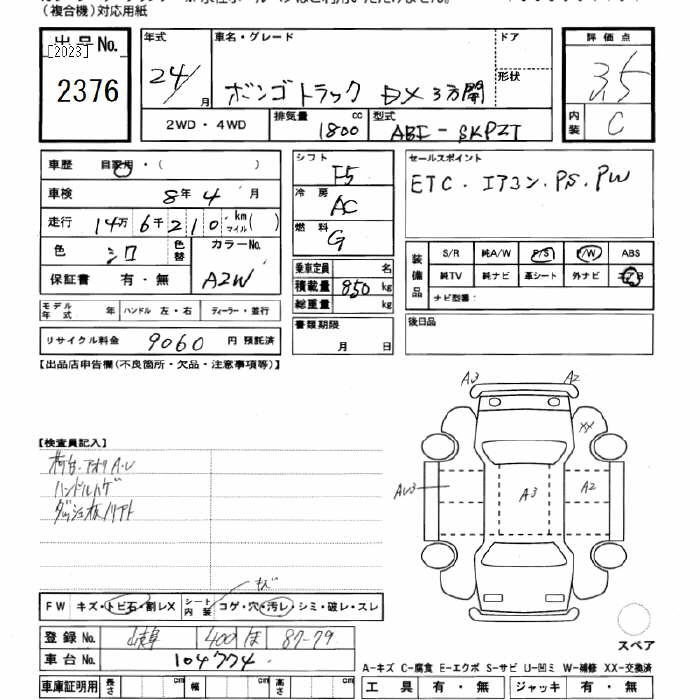 (複合機)対応用紙
出品No. [2023] 2376
年式 24/ 月
車名・グレード ボンゴトラック DX 3方開
ドア
形状
2WD・4WD
排気量 1800 cc
型式 ABF-SKP2T
評価点 3.5
内装 C
車歴 自家用・( )
車検 8年4月
走行 14万6千210km マイル( )
色 シロ
色替
カラーNo. A2W
保証書 有・無
モデル年式 年 ハンドル 左・右 ディーラー・並行
リサイクル料金 9060 円 預託済
シフト F5
冷房 AC
燃料 G
乗車定員 名
積載量 850 kg
総重量 kg
書類期限
月 日
セールスポイント
ETC. エアコン. PS. PW
装備品
S/R 純A/W P/S P/W ABS
純TV 純ナビ 革シート 外ナビ
ナビ型番:
後日品
【出品店申告欄(不良箇所・欠品・注意事項等)】
【検査員記入】
荷台・アオリA・U
ハンドルハゲ
A3 A2
XX
AU3 A3 A2
FW キズ・トビ石・割レX
シート内装 コゲ・穴・汚レ・シミ・破レ・スレ
登録No. 岐阜 400 ほ 87-79
車台No. 104774
車庫証明用 長さ cm 幅 cm 高さ cm
スペア
A-キズ C-腐食 E-エクボ S-サビ U-凹ミ W-補修 XX-交換済
工具 有・無 ジャッキ 有・無